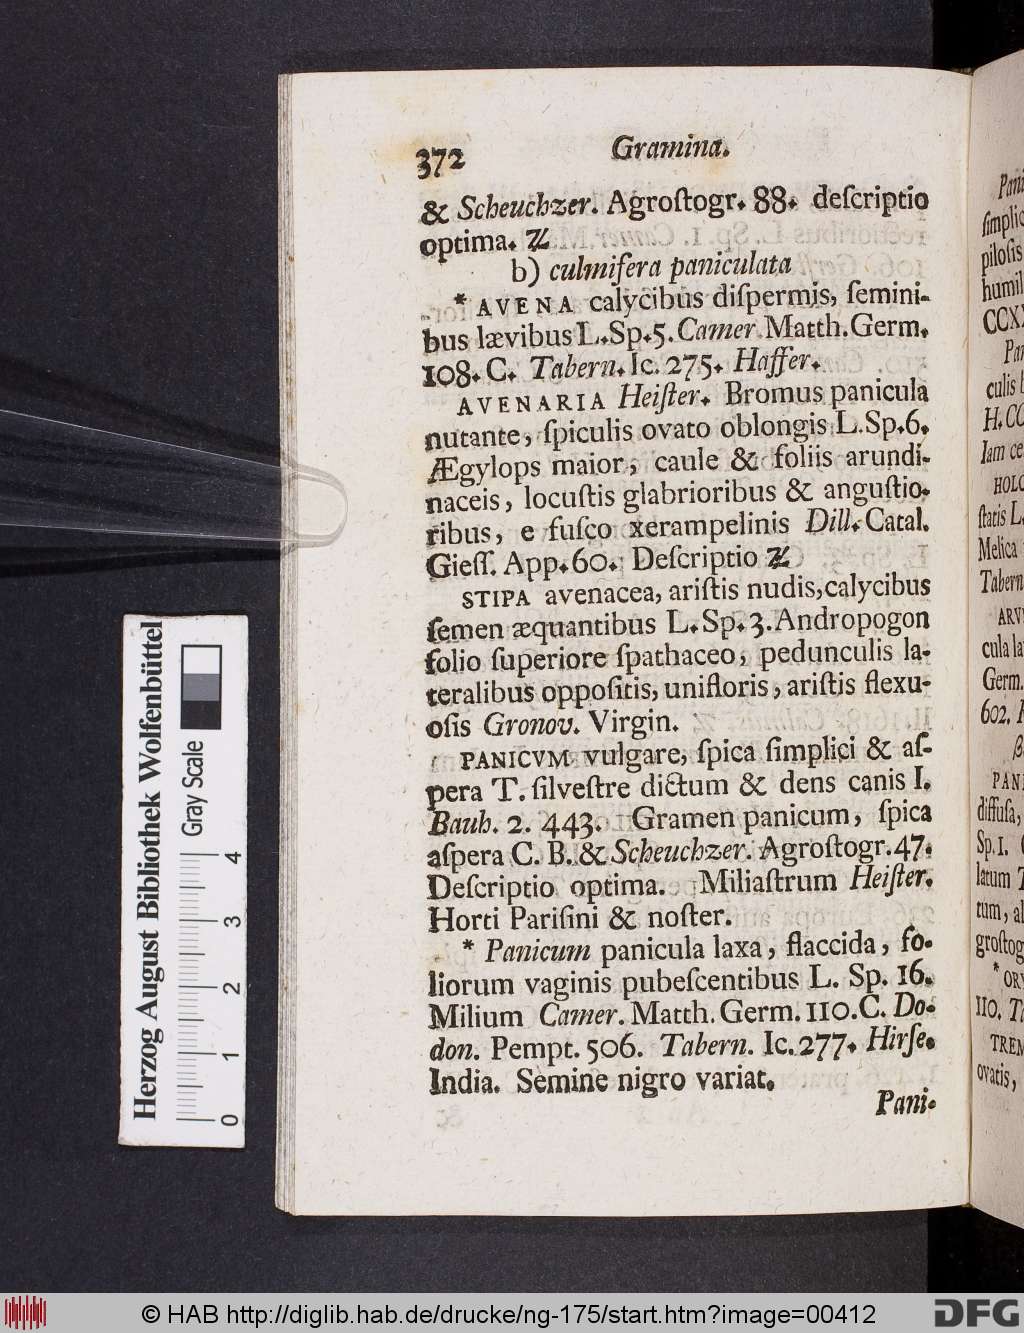 372 Gramina.
& Scheuchzer. Agroſtogr. 88. deſcriptio
optima. ♃
b) culmifera paniculata
* AVENA calycibus diſpermis, ſemini-
bus lævibus L. Sp. 5. Camer. Matth. Germ.
108. C. Tabern. Ic. 275. Haffer.
AVENARIA Heiſter. Bromus panicula
nutante, ſpiculis ovato oblongis L. Sp. 6.
Ægylops maior, caule & foliis arundi-
naceis, locuſtis glabrioribus & anguſtio-
ribus, e fuſco xerampelinis Dill. Catal.
Gieſſ. App. 60. Deſcriptio ♃
STIPA avenacea, ariſtis nudis, calycibus
ſemen æquantibus L. Sp. 3. Andropogon
folio ſuperiore ſpathaceo, pedunculis la-
teralibus oppoſitis, unifloris, ariſtis flexu-
oſis Gronov. Virgin.
PANICVM vulgare, ſpica ſimplici & aſ-
pera T. ſilveſtre dictum & dens canis I.
Bauh. 2. 443. Gramen panicum, ſpica
aſpera C. B. & Scheuchzer. Agroſtogr. 47.
Deſcriptio optima. Miliaſtrum Heiſter.
Horti Pariſini & noſter.
* Panicum panicula laxa, flaccida, fo-
liorum vaginis pubeſcentibus L. Sp. 16.
Milium Camer. Matth. Germ. 110. C. Do-
don. Pempt. 506. Tabern. Ic. 277. Hirſe.
India. Semine nigro variat.
Pani-
ſimplic
piloſis
humil
culis
H. CC
Iam ce
ſtatis L.
Melica
Tabern
cula la
Germ.
602.
PANI
diffuſa,
Sp. 1.
latum
tum, al
groſtog
110.
TREM
ovatis,
Herzog August Bibliothek Wolfenbüttel
Gray Scale
0 1 2 3 4
© HAB http://diglib.hab.de/drucke/ng-175/start.htm?image=00412
DFG